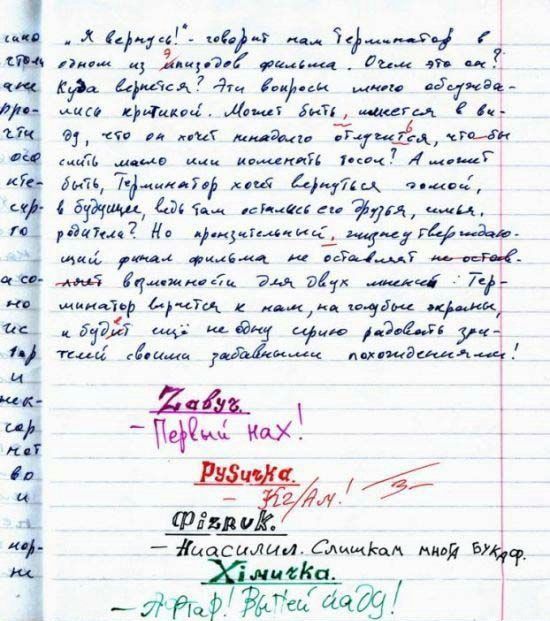 „Я вернусь!" - говорит нам Терминатор в
одном из эпизодов фильма. О чем это он?
Куда вернется? Эти вопросы много обсужда-
лись критикой. Может быть, имеется в ви-
ду, что он хочет ненадолго отлучиться, что бы
слить масло или поменять тосол? А может
быть, Терминатор хочет вернуться домой,
в будущее, ведь там остались его друзья, семья,
родители? Но пронзительный, жизнеутверждаю-
щий финал фильма не оставляет не остав-
ляет возможности для двух мнений: Тер-
минатор вернется к нам, на голубые экраны,
и будет ещё не одну серию радовать зри-
телей своими забавными похождениями!
Zавуч.
- Первый нах!
РуSичка.
- КГ/Ам! 3-
Фiзруk.
- Ниасилил. Слишкам многа букаф.
Хiмичка.
- Афтар! Выпей йаду!